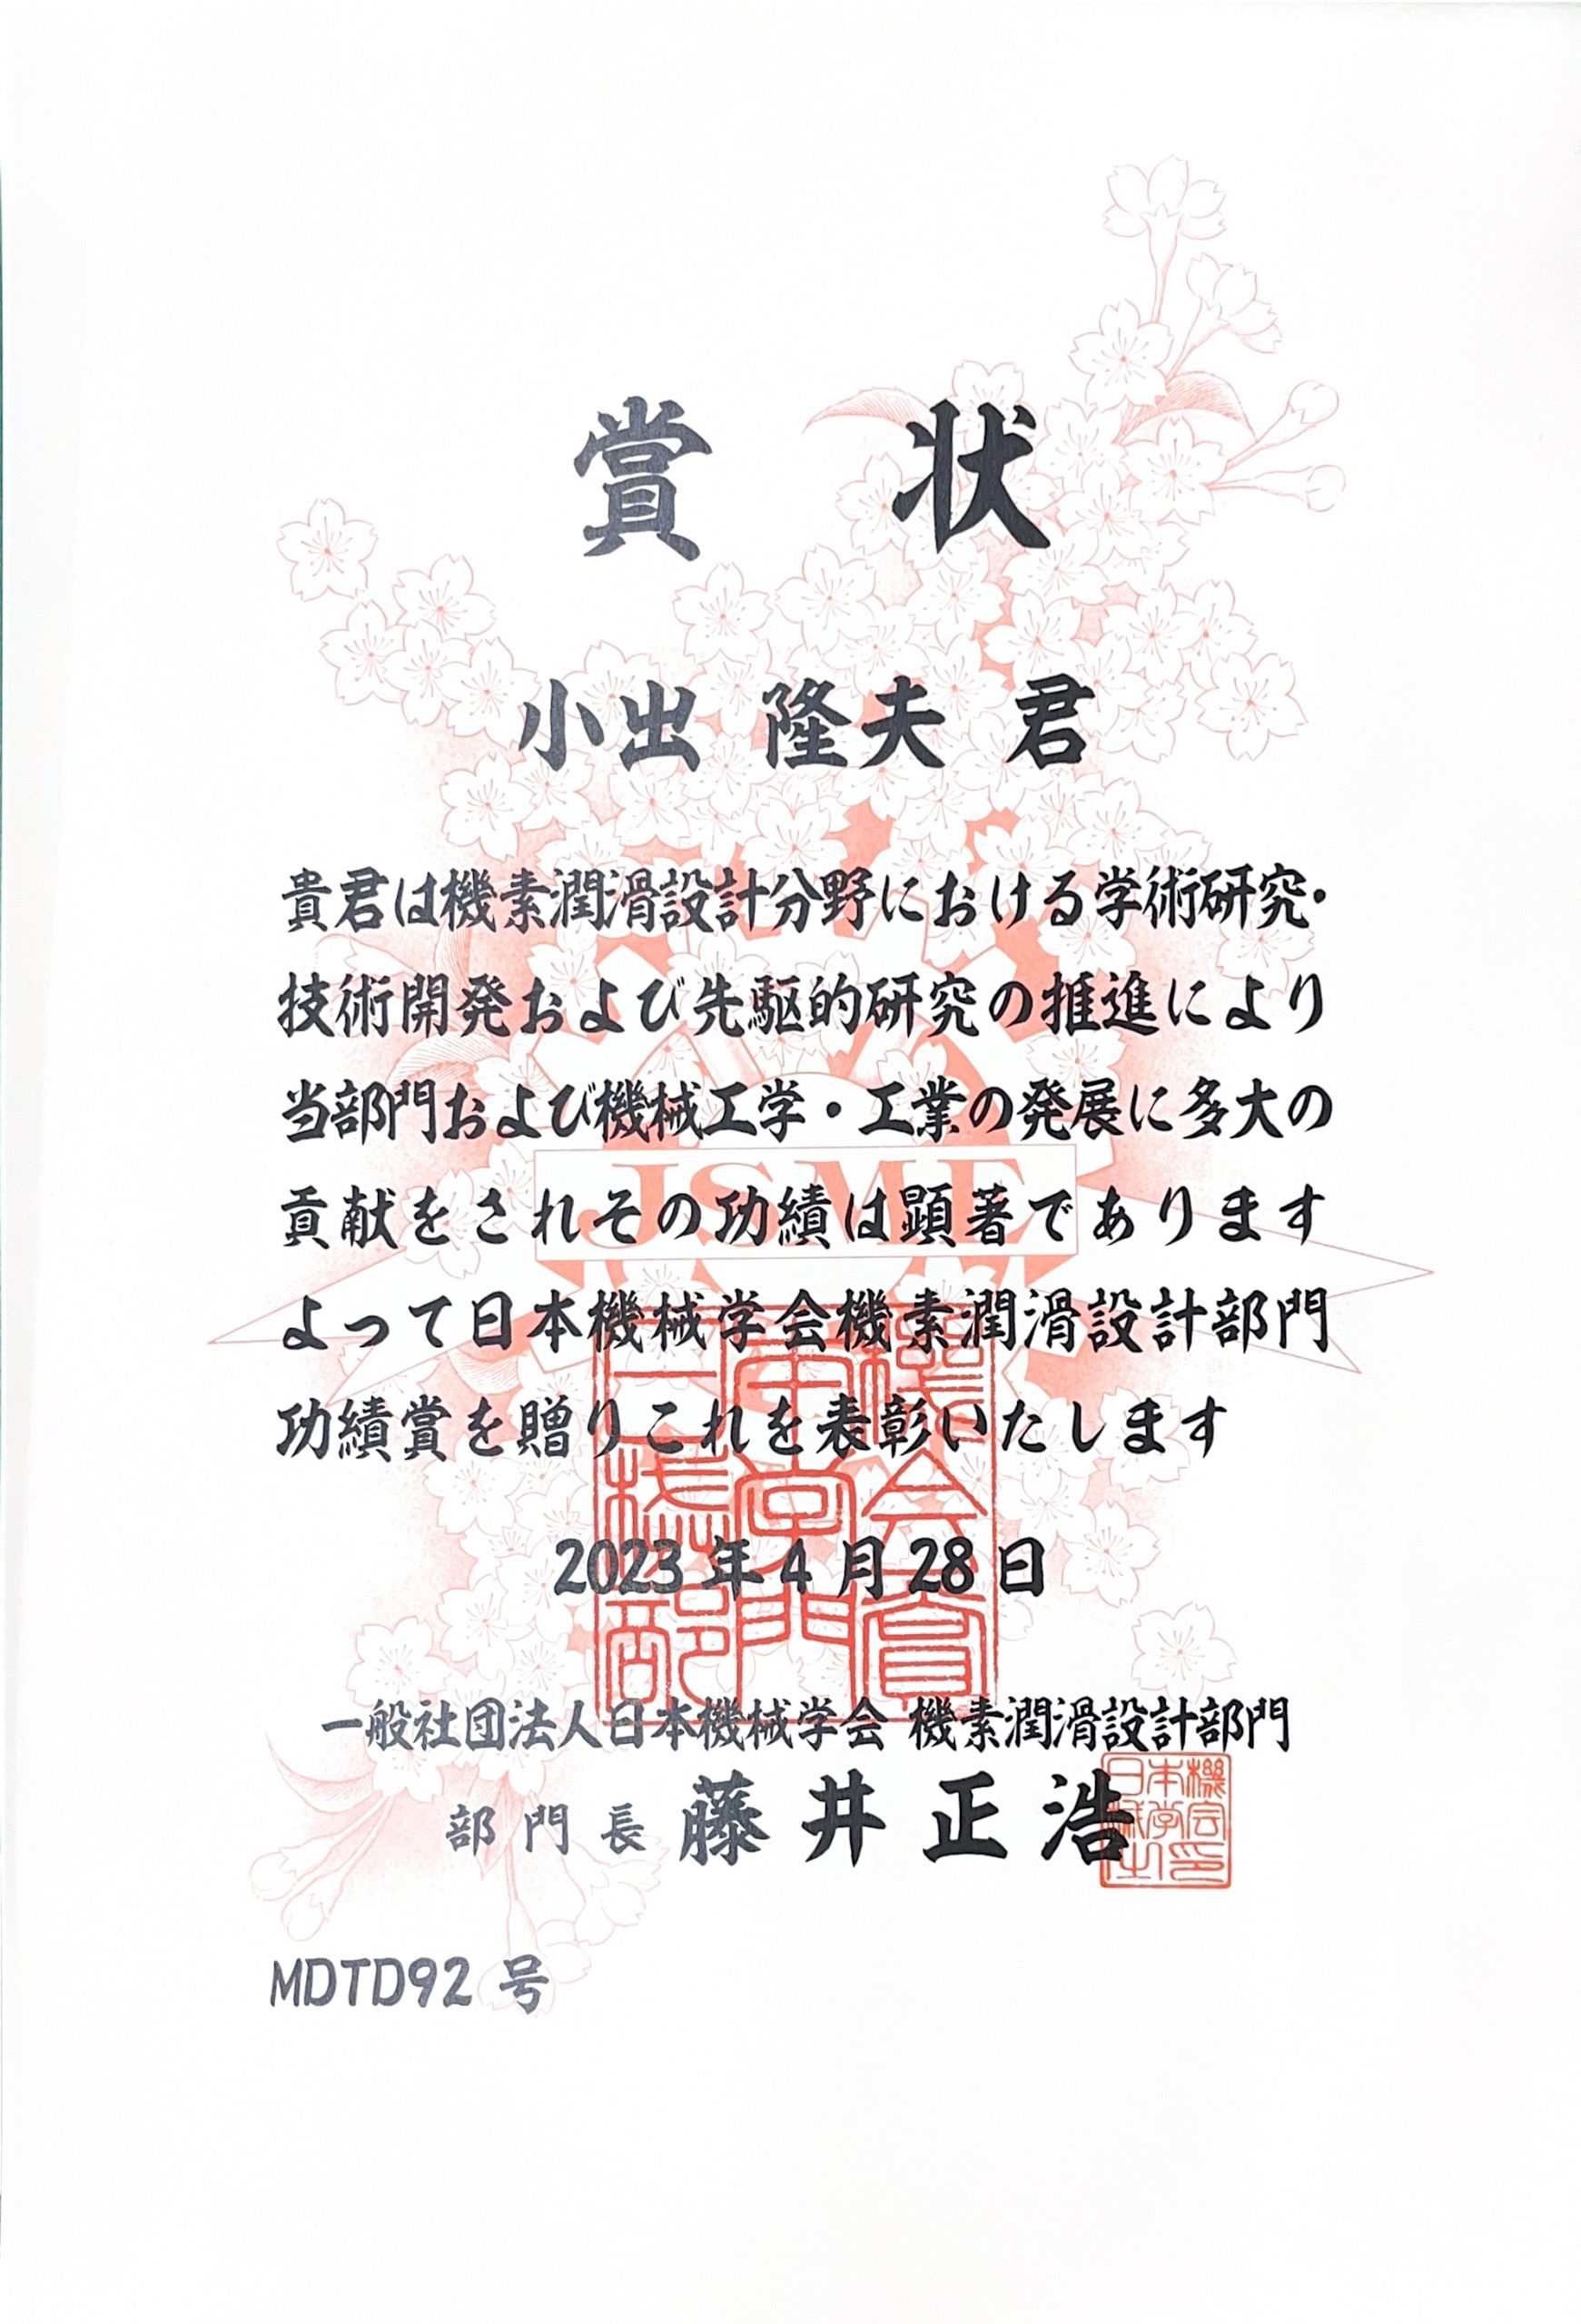 賞 状
小出 隆夫 君
貴君は機素潤滑設計分野における学術研究・
技術開発および先駆的研究の推進により
当部門および機械工学・工業の発展に多大の
貢献をされその功績は顕著であります
JSME
よって日本機械学会機素潤滑設計部門
功績賞を贈りこれを表彰いたします
2023 年 4 月 28 日
一般社団法人日本機械学会 機素潤滑設計部門
部 門 長 藤 井 正 浩
MDTD92 号